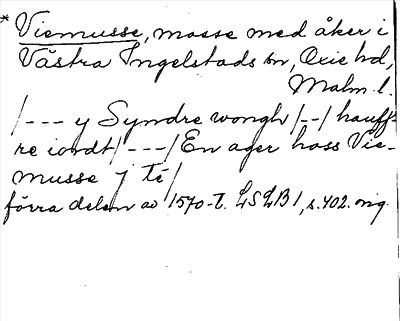 * Viemusse, mosse med åker i
Västra Ingelstads sn, Oxie hd,
Malm. l.
/--- y Syndre wongh /--/ hauff-
re iordt/---/ En ager hoss Vie-
musse j té/
förra delen av 1570-t. LSLB 1, s. 402. orig.